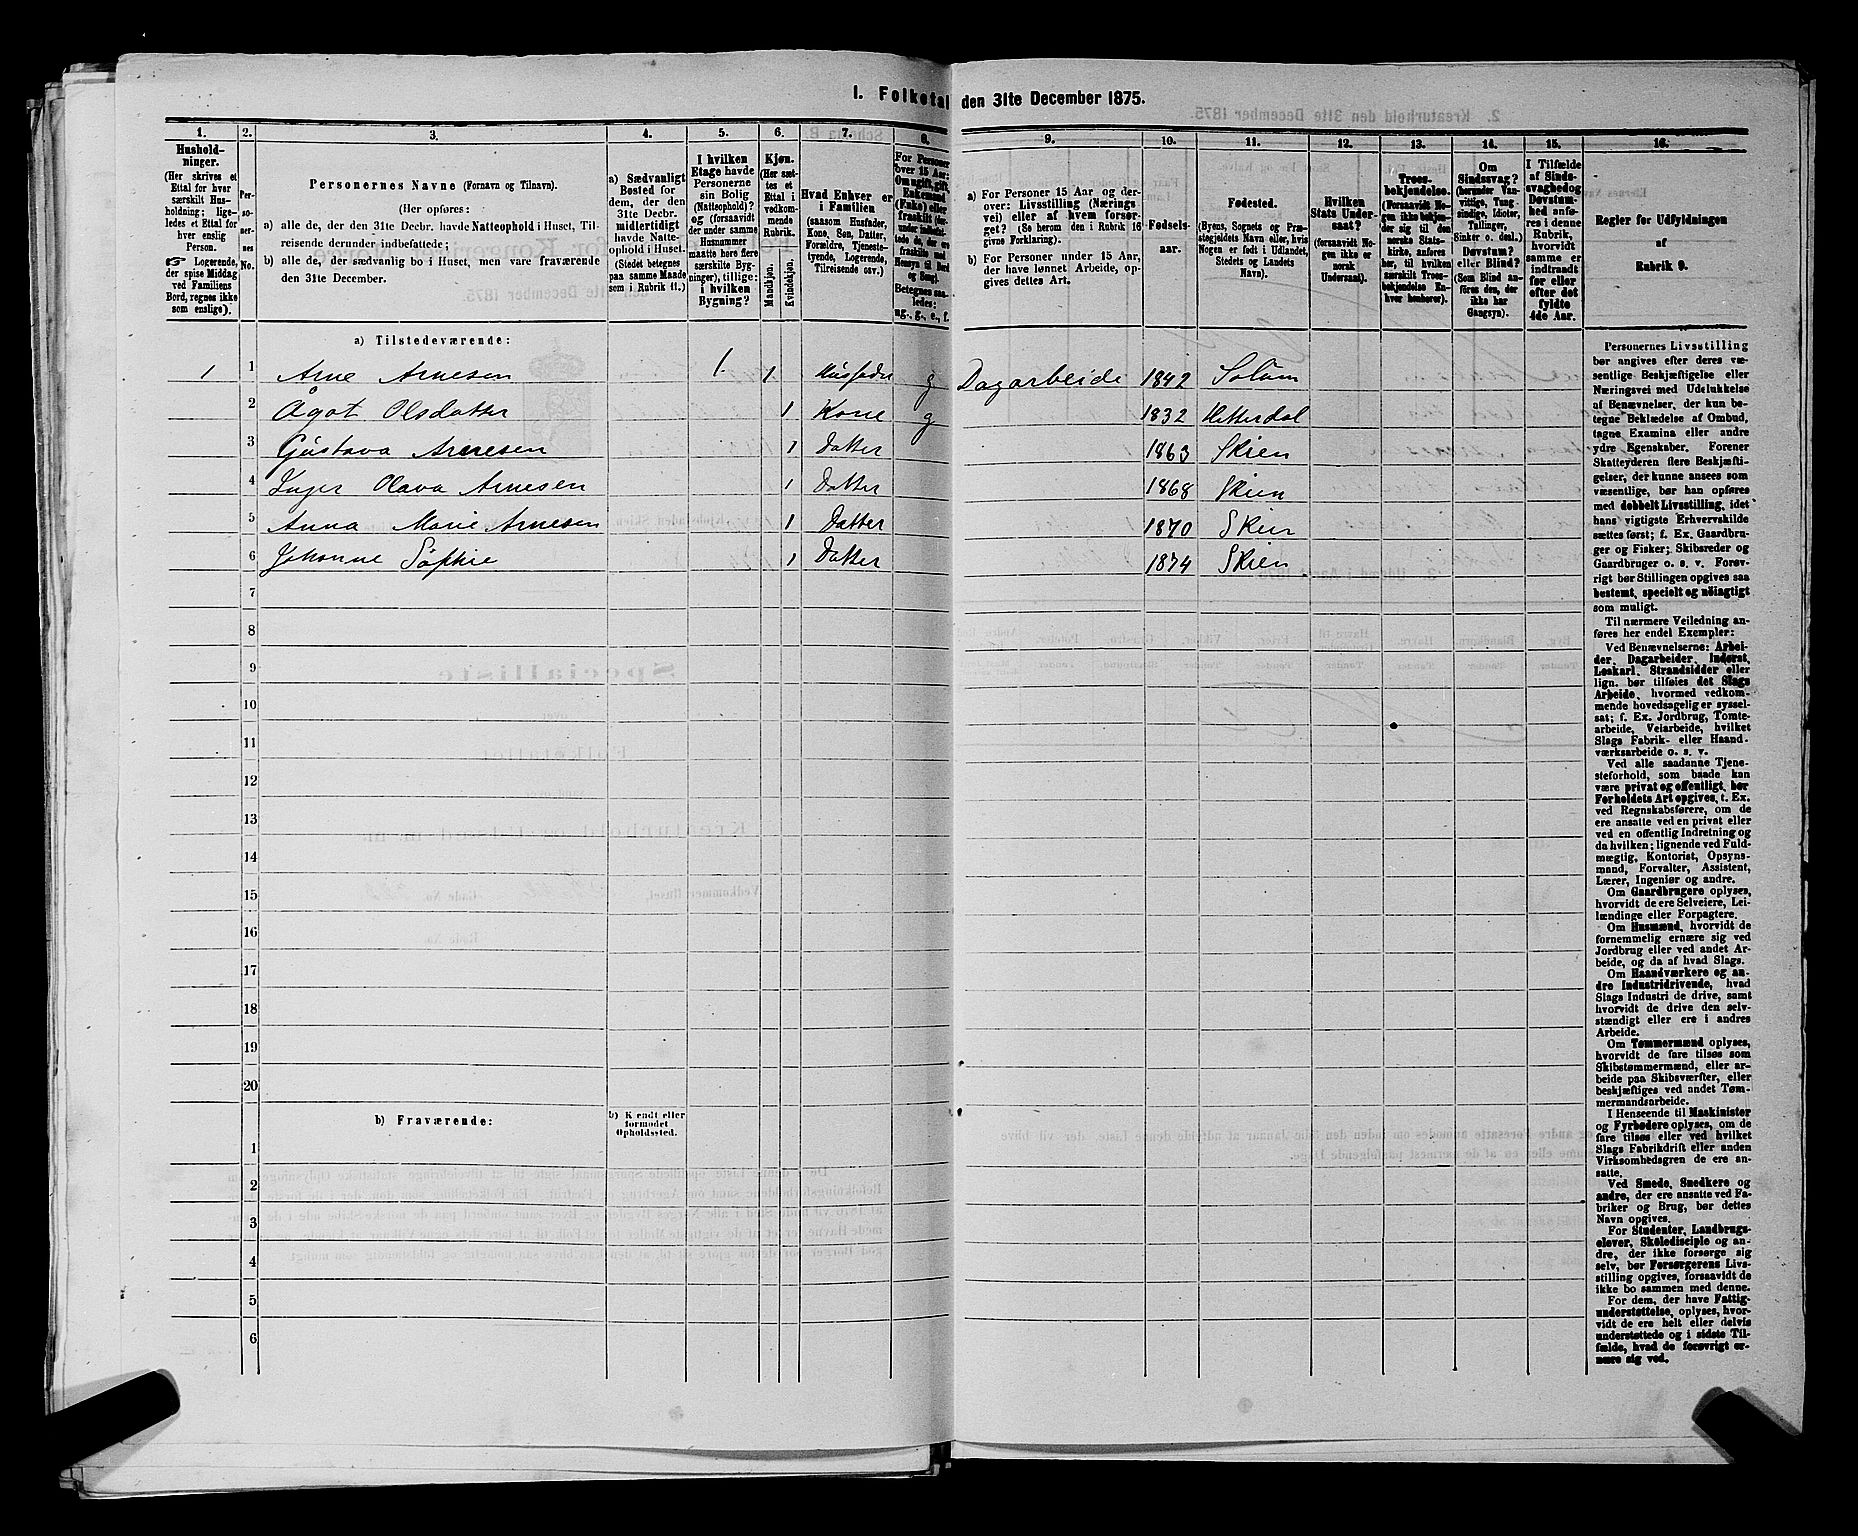 I. Folketal den 31te December 1875.
1.
Hushold-
ninger.
(Her skrives et
Ettal for hver
særskilt Hus-
holdning; lige-
ledes et Ettal for
hver enslig
Person.
Logerende,
der spise Middag
ved Familiens
Bord, regnes ikke
som enslige).
2.
Per-
so-
ner-
nes
No.
3.
Personernes Navne (Fornavn og Tilnavn).
(Her opføres:
a) alle de, der den 31te Decbr. havde Natteophold i Huset, Til-
reisende derunder indbefattede;
b) alle de, der sædvanlig bo i Huset, men vare fraværende
den 31te December.
4.
a) Sædvanligt
Bosted for
dem, der den
31te Decbr.
midlertidigt
havde Natte-
ophold i Huset.
(Stedet betegnes
paa samme Maade
som i Rubrik 11.)
5.
I hvilken
Etage havde
Personerne
sin Bolig
(Natteophold)?
og (forsaavidt
der under samme
Husnummer
maatte høre flere
særskilte Byg-
ninger), tillige:
i hvilken
Bygning?
6.
Kjøn.
(Her sæt-
tes et
Ettal i
vedkom-
mende
Rubrik.
Mandkjøn.
Kvindekjøn.
7.
Hvad Enhver er
i Familien
(saasom Husfader,
Kone, Søn, Datter,
Forældre, Tjeneste-
tyende, Logerende,
Tilreisende osv.)
8.
For Personer
over 15 Aar:
Om ugift, gift,
Enkemand
(Enke) eller
fraskilt (for-
Betegnes saa-
ledes:
ug., g., e., f.
9.
a) For Personer 15 Aar og der-
over: Livsstilling (Nærings
vei) eller af hvem forsør-
get? (Se herom den i Rubrik 16
givne Forklaring).
b) For Personer under 15 Aar,
der have lønnet Arbeide, op-
gives dettes Art.
10.
Fødsels-
aar.
11.
Fødested.
(Byens, Sognets og Præ-
stegjeldets Navn eller, hvis
Nogen er født i Udlandet,
Stedets og Landets
Navn).
12.
Hvilken
Stats Under-
saat?
(forsaavidt No-
gen ikke er
norsk
Undersaat).
13.
Troes-
bekjendelse.
(Forsaavidt No-
gen ikke bekjen-
der sig til den
norske Stats-
kirke, anføres
her, til hvilken
særskilt Troes-
bekjendelse En-
hver henhører).
14.
Om
Sindssvag?
(herunder Van-
vittige, Tung-
sindige, Idioter,
Tullinger,
Sinker o. desl.)
Døvstum?
eller Blind?
(Som Blind an-
føres den, der
ikke har
Gangsyn).
15.
I Tilfælde
af Sinds-
svaghed og
Døvstum-
hed anfø-
res i denne
Rubrik,
hvorvidt
samme er
indtraadt
før eller
efter det
fyldte
4de Aar.
16.
Regler for Udfyldningen
af
Rubrik 9.
a) Tilstedeværende:
1 1 Arne Arnesen 1. 1. Husfader g Dagarbeide 1842 Solum
2 Ågot Olsdatter 1 Kone g 1832 Hitterdal
3 Gustava Arnesen 1 Datter 1863 Skien
4 Inger Olava Arnesen 1 Datter 1868 Skien
5 Anna Marie Arnesen 1 Datter 1870 Skien
6 Johanne Sophie 1 Datter 1874 Skien
7
8
9
10
11
12
13
14
15
16
17
18
19
20
b) Fraværende:
b) Kjendt eller
formodet
Opholdssted.
1
2
3
4
5
6
Personernes Livsstilling
bør angives efter deres væ-
sentlige Beskjæftigelse eller
Næringsvei med Udelukkelse
af Benævnelser, der kun be-
tegne Beklædelse af Ombud,
tagne Examina eller andre
ydre Egenskaber. Forener
Skatteyderen flere Beskjæfti-
gelser, der kunne ansees som
væsentlige, bør han opføres
med dobbelt Livsstilling, idet
hans vigtigste Erhvervskilde
sættes først; f. Ex. Gaardbru-
ger og Fisker; Skibsreder og
Gaardbruger o. s. v. Forøv-
rigt bør Stillingen opgives saa
bestemt, specielt og nöiagtigt
som muligt.
Til nærmere Veiledning an-
føres her endel Exempler:
Ved Benævnelserne: Arbei-
der, Dagarbeider, Inderst,
Løskarl, Strandsidder eller
lign. bør tilføies det Slags
Arbeide, hvormed vedkom-
mende hovedsagelig er syssel-
sat; f. Ex. Jordbrug, Tomte-
arbeide, Veiarbeide, hvilket
Slags Fabrik- eller Haand-
værksarbeide o. s. v.
Ved alle saadanne Tjene-
steforhold, som baade kan
være privat og offentligt, bør
Forholdets Art opgives, t. Ex.
ved Regnskabsførere, om de
ere ansatte ved en privat eller
ved en offentlig Indretning og
da hvilken; lignende ved Fuld-
mægtig, Kontorist, Opsyns-
mand, Forvalter, Assistent,
Lærer, Ingeniør og andre.
Om Gaardbrugere oplyses,
hvorvidt de ere Selveiere, Lei-
lændinge eller Forpagtere.
Om Husmænd, hvorvidt de
fornemmelig ernære sig ved
Jordbrug eller ved andet Ar-
beide, og da af hvad Slags.
Om Haandværkere og an-
dre Industridrivende, hvad
Slags Industri de drive, samt
hvorvidt de drive den selv-
stændigt eller ere i andres
Arbeide.
Om Tømmermænd oplyses,
hvorvidt de fare tilsøs som
Skibstømmermænd, eller ar-
beide paa Skibsværfter, eller
beskjæftiges ved andet Tøm-
mermandsarbeide.
I Henseende til Maskinister
og Fyrbødere oplyses, om de
fare tilsøs eller ved hvilket
Slags Fabrikdrift eller anden
Virksomhedsgren de ere an-
satte.
Ved Smede, Snedkere og
andre, der ere ansatte ved Fa-
briker og Brug, bør dettes
Navn opgives.
For Studenter, Landbrugs-
elever, Skoledisciple og an-
dre, der ikke forsørge sig
selv, bør Forsørgerens Livs-
stilling opgives, forsaavidt de
ikke bo sammen med denne.
For dem, der have Fattig-
understøttelse, oplyses, hvor-
vidt de ere helt eller delvis
understøttede og i sidste Til-
fælde, hvad de forøvrigt er-
nære sig ved.